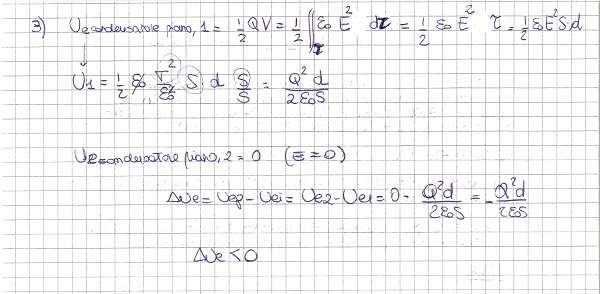 3) Ue condensatore piano, 1 = 1/2 QV = 1/2 ∫∫ ε0 E² dτ = 1/2 ε0 E² τ = 1/2 ε0 E² S·d
↓
U1 = 1/2 ε0 σ²/ε0² S·d S/S = Q²d/2ε0S
U2 condensatore piano, 2 = 0 (E=0)
ΔUe = Uef - Uei = Ue2 - Ue1 = 0 - Q²d/2ε0S = - Q²d/2ε0S
ΔUe < 0